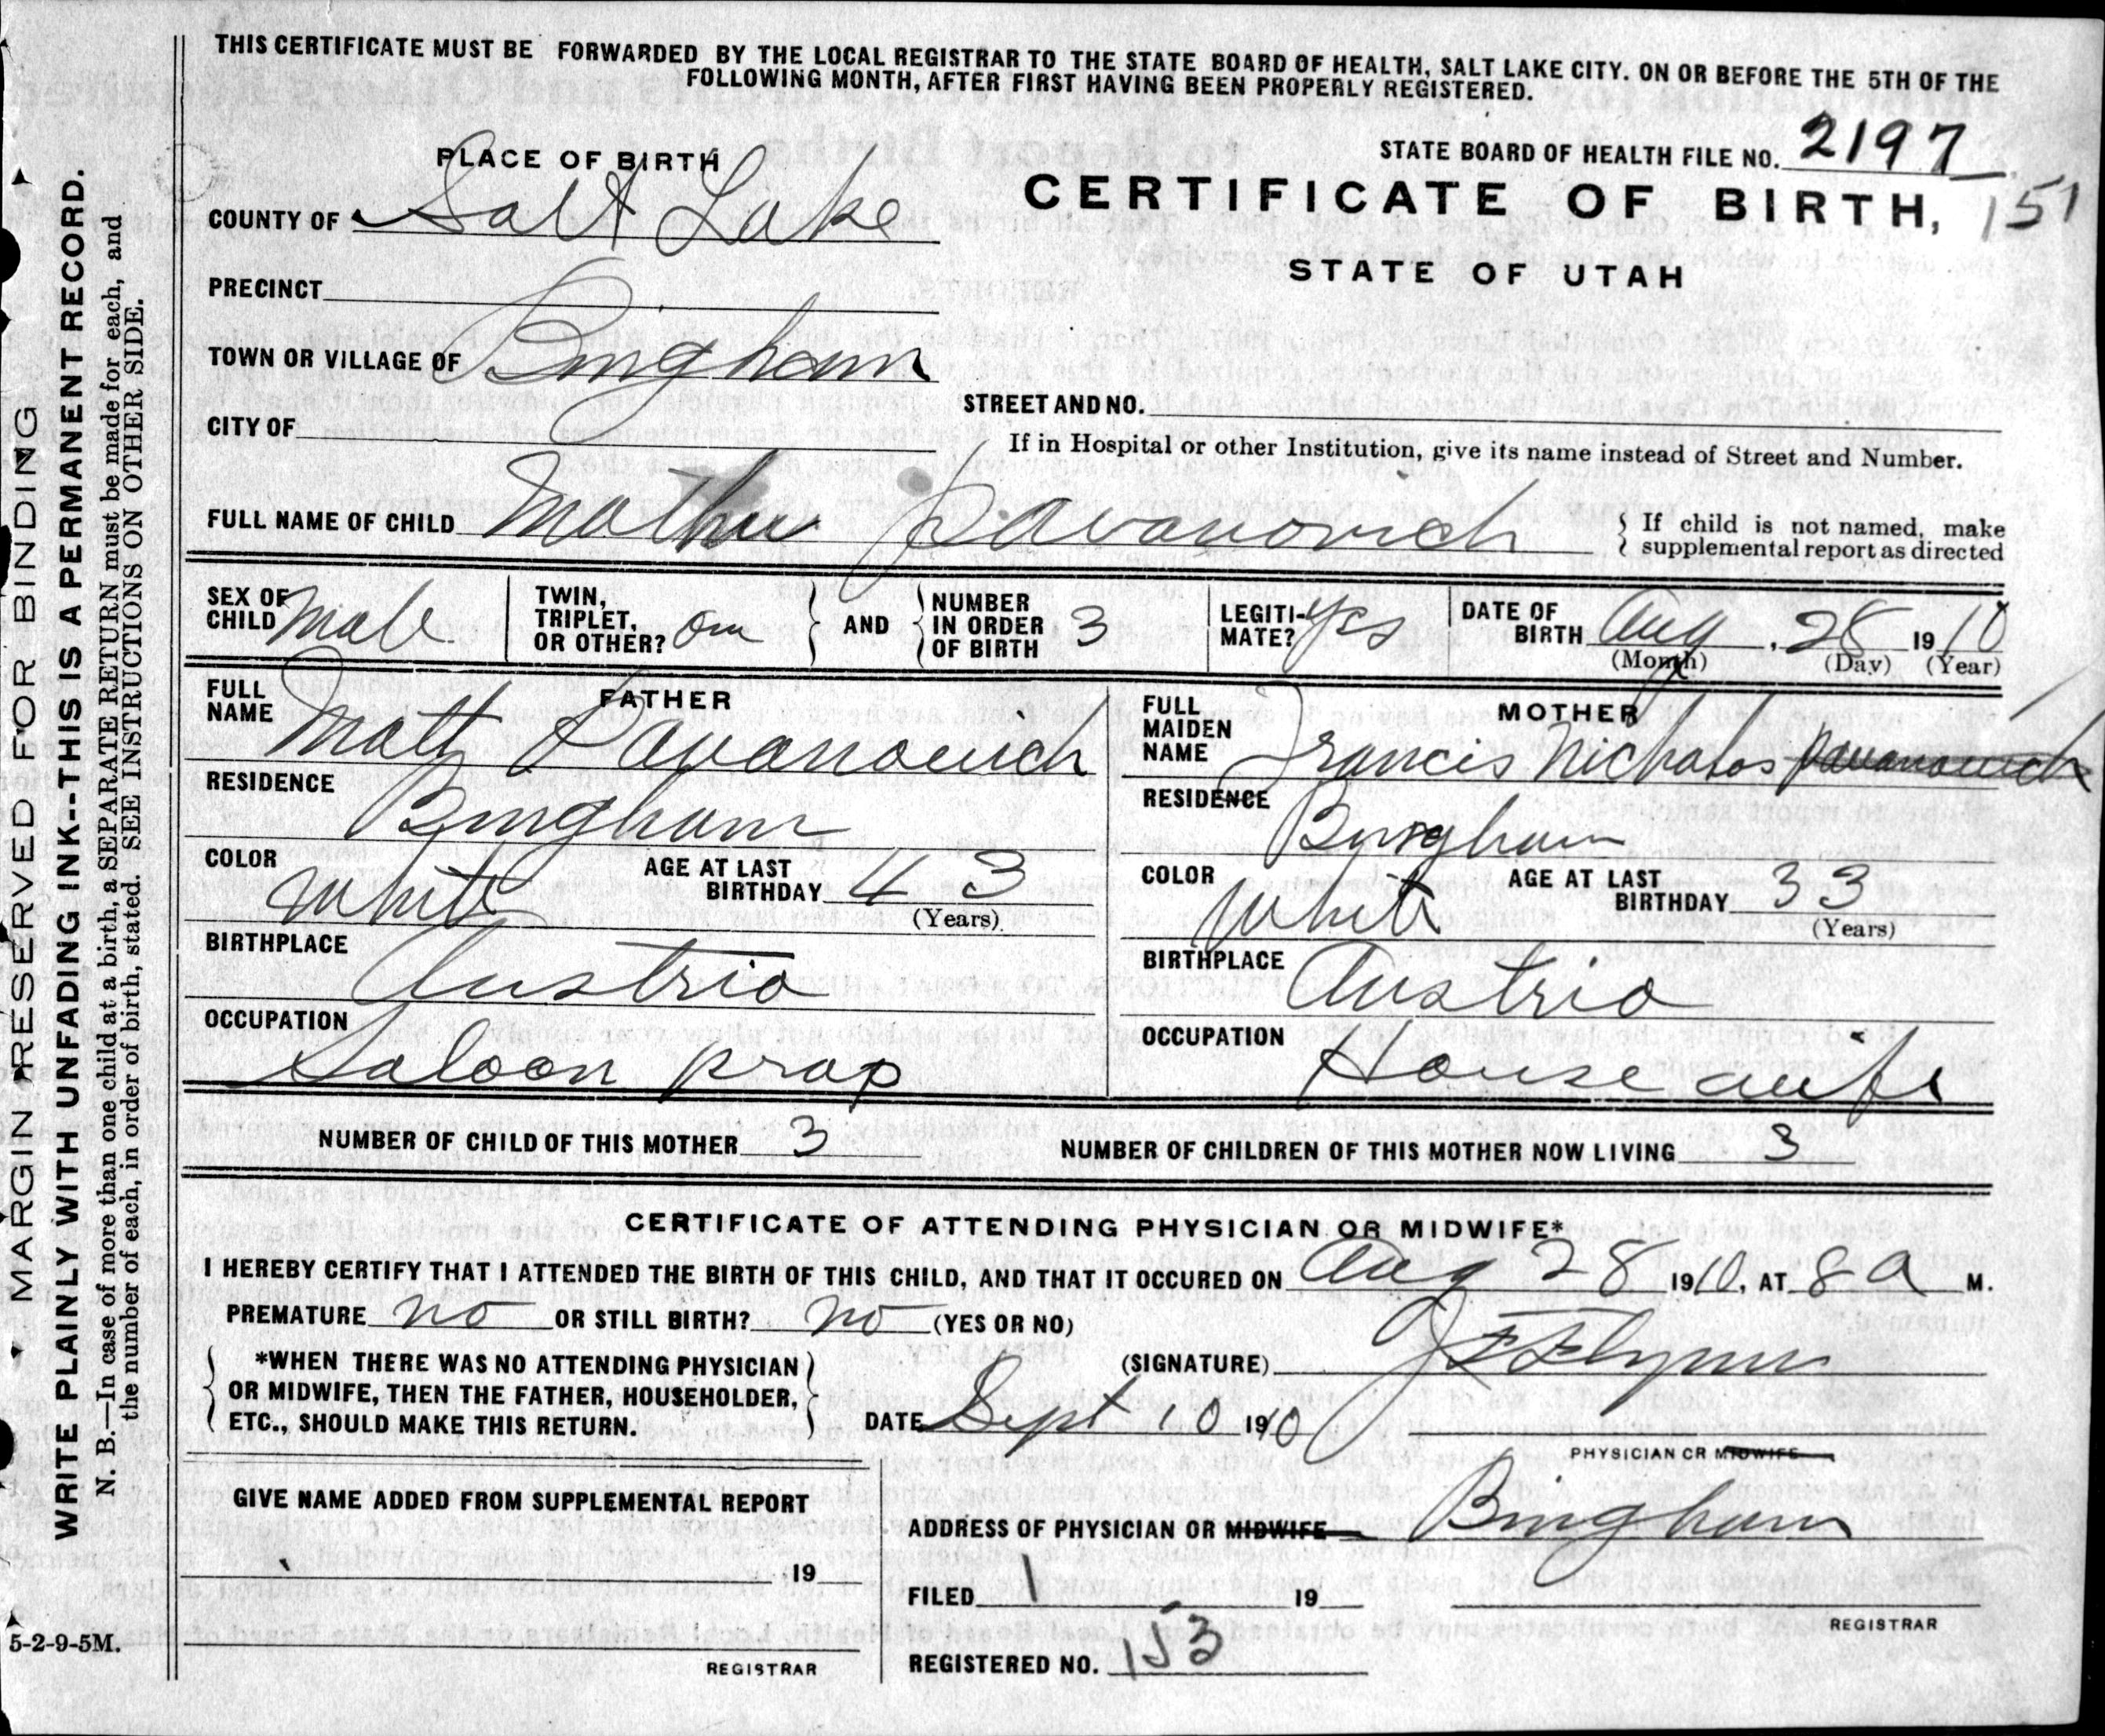 THIS CERTIFICATE MUST BE FORWARDED BY THE LOCAL REGISTRAR TO THE STATE BOARD OF HEALTH, SALT LAKE CITY. ON OR BEFORE THE 5TH OF THE
FOLLOWING MONTH, AFTER FIRST HAVING BEEN PROPERLY REGISTERED.
STATE BOARD OF HEALTH FILE NO. 2197
CERTIFICATE OF BIRTH, 151
STATE OF UTAH
PLACE OF BIRTH
COUNTY OF Salt Lake
PRECINCT
TOWN OR VILLAGE OF Bingham
CITY OF
STREET AND NO.
If in Hospital or other Institution, give its name instead of Street and Number.
FULL NAME OF CHILD Pavanovich
If child is not named, make
supplemental report as directed
SEX OF CHILD Male
TWIN, TRIPLET, OR OTHER?
AND
NUMBER IN ORDER OF BIRTH 3
LEGITIMATE? Yes
DATE OF BIRTH Aug. 28 1910
(Month) (Day) (Year)
FATHER
FULL NAME Matt Pavanovich
RESIDENCE
Bingham
COLOR White
AGE AT LAST BIRTHDAY 43
(Years)
BIRTHPLACE
Austria
OCCUPATION
Saloon prop
MOTHER
FULL MAIDEN NAME Francis Nicholos Pavanovich
RESIDENCE
Bingham
COLOR White
AGE AT LAST BIRTHDAY 33
(Years)
BIRTHPLACE
Austria
OCCUPATION
Housewife
NUMBER OF CHILD OF THIS MOTHER 3
NUMBER OF CHILDREN OF THIS MOTHER NOW LIVING 3
CERTIFICATE OF ATTENDING PHYSICIAN OR MIDWIFE*
I HEREBY CERTIFY THAT I ATTENDED THE BIRTH OF THIS CHILD, AND THAT IT OCCURED ON Aug 28 1910, AT 8 a M.
PREMATURE no OR STILL BIRTH? no (YES OR NO)
*WHEN THERE WAS NO ATTENDING PHYSICIAN
OR MIDWIFE, THEN THE FATHER, HOUSEHOLDER,
ETC., SHOULD MAKE THIS RETURN.
(SIGNATURE) J F Flynn
DATE Sept 10 1910
PHYSICIAN OR MIDWIFE
GIVE NAME ADDED FROM SUPPLEMENTAL REPORT
19
REGISTRAR
ADDRESS OF PHYSICIAN OR MIDWIFE Bingham
FILED 1 19
REGISTRAR
REGISTERED NO. 153
MARGIN RESERVED FOR BINDING
WRITE PLAINLY WITH UNFADING INK--THIS IS A PERMANENT RECORD.
N. B.—In case of more than one child at a birth, a SEPARATE RETURN must be made for each, and
the number of each, in order of birth, stated. SEE INSTRUCTIONS ON OTHER SIDE.
5-2-9-5M.